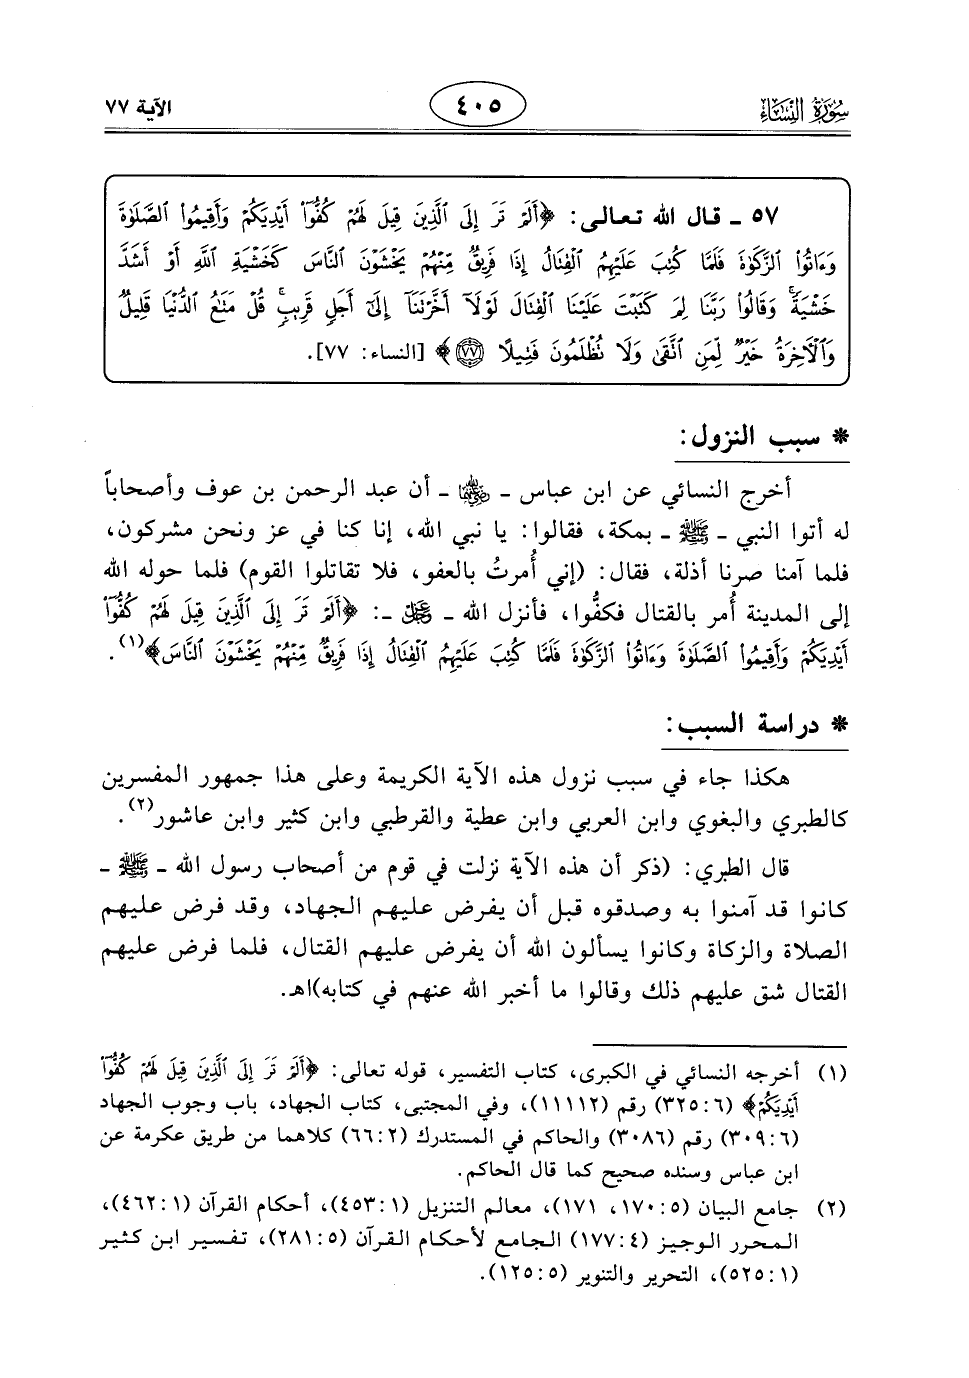 سورة النساء
٤٠٥
الآية ٧٧
٥٧ ـ قال الله تعالى: ﴿أَلَمْ تَرَ إِلَى ٱلَّذِينَ قِيلَ لَهُمْ كُفُّوٓا۟ أَيْدِيَكُمْ وَأَقِيمُوا۟ ٱلصَّلَوٰةَ
وَءَاتُوا۟ ٱلزَّكَوٰةَ فَلَمَّا كُتِبَ عَلَيْهِمُ ٱلْقِتَالُ إِذَا فَرِيقٌ مِّنْهُمْ يَخْشَوْنَ ٱلنَّاسَ كَخَشْيَةِ ٱللَّهِ أَوْ أَشَدَّ
خَشْيَةً ۚ وَقَالُوا۟ رَبَّنَا لِمَ كَتَبْتَ عَلَيْنَا ٱلْقِتَالَ لَوْلَآ أَخَّرْتَنَآ إِلَىٰٓ أَجَلٍ قَرِيبٍ ۗ قُلْ مَتَٰعُ ٱلدُّنْيَا قَلِيلٌ
وَٱلْءَاخِرَةُ خَيْرٌ لِّمَنِ ٱتَّقَىٰ وَلَا تُظْلَمُونَ فَتِيلًا ٧٧﴾ [النساء: ٧٧].
* سبب النزول:
أخرج النسائي عن ابن عباس ـ رضي الله عنهما ـ أن عبد الرحمن بن عوف وأصحاباً
له أتوا النبي ـ ﷺ ـ بمكة، فقالوا: يا نبي الله، إنا كنا في عز ونحن مشركون،
فلما آمنا صرنا أذلة، فقال: (إني أُمرتُ بالعفو، فلا تقاتلوا القوم) فلما حوله الله
إلى المدينة أُمر بالقتال فكفُّوا، فأنزل الله ـ عز وجل ـ: ﴿أَلَمْ تَرَ إِلَى ٱلَّذِينَ قِيلَ لَهُمْ كُفُّوٓا۟
أَيْدِيَكُمْ وَأَقِيمُوا۟ ٱلصَّلَوٰةَ وَءَاتُوا۟ ٱلزَّكَوٰةَ فَلَمَّا كُتِبَ عَلَيْهِمُ ٱلْقِتَالُ إِذَا فَرِيقٌ مِّنْهُمْ يَخْشَوْنَ ٱلنَّاسَ﴾(١).
* دراسة السبب:
هكذا جاء في سبب نزول هذه الآية الكريمة وعلى هذا جمهور المفسرين
كالطبري والبغوي وابن العربي وابن عطية والقرطبي وابن كثير وابن عاشور(٢).
قال الطبري: (ذكر أن هذه الآية نزلت في قوم من أصحاب رسول الله ـ ﷺ ـ
كانوا قد آمنوا به وصدقوه قبل أن يفرض عليهم الجهاد، وقد فرض عليهم
الصلاة والزكاة وكانوا يسألون الله أن يفرض عليهم القتال، فلما فرض عليهم
القتال شق عليهم ذلك وقالوا ما أخبر الله عنهم في كتابه)اهـ.
(١) أخرجه النسائي في الكبرى، كتاب التفسير، قوله تعالى: ﴿أَلَمْ تَرَ إِلَى ٱلَّذِينَ قِيلَ لَهُمْ كُفُّوٓا۟
أَيْدِيَكُمْ﴾ (٦: ٣٢٥) رقم (١١١١٢)، وفي المجتبى، كتاب الجهاد، باب وجوب الجهاد
(٦: ٣٠٩) رقم (٣٠٨٦) والحاكم في المستدرك (٢: ٦٦) كلاهما من طريق عكرمة عن
ابن عباس وسنده صحيح كما قال الحاكم.
(٢) جامع البيان (٥: ١٧٠، ١٧١)، معالم التنزيل (١: ٤٥٣)، أحكام القرآن (١: ٤٦٢)،
المحرر الوجيز (٤: ١٧٧) الجامع لأحكام القرآن (٥: ٢٨١)، تفسير ابن كثير
(١: ٥٢٥)، التحرير والتنوير (٥: ١٢٥).